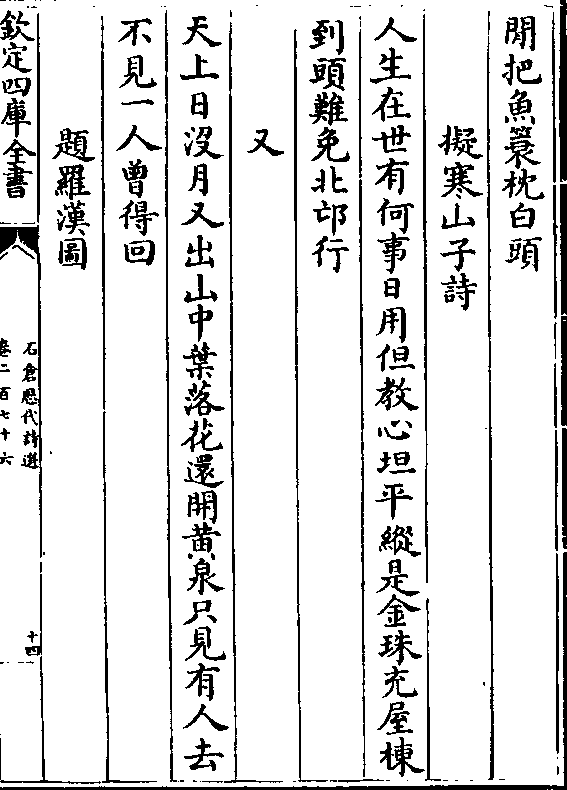 閒把魚簑枕白頭
擬寒山子詩
人生在世有何事日用但教心坦平縱是金珠充屋棟
到頭難免北邙行
又
天上日沒月又出山中葉落花還開黄泉只見有人去
不見一人曾得回
題羅漢圖
欽定四庫全書
石倉歷代詩選
卷二百七十六
十四